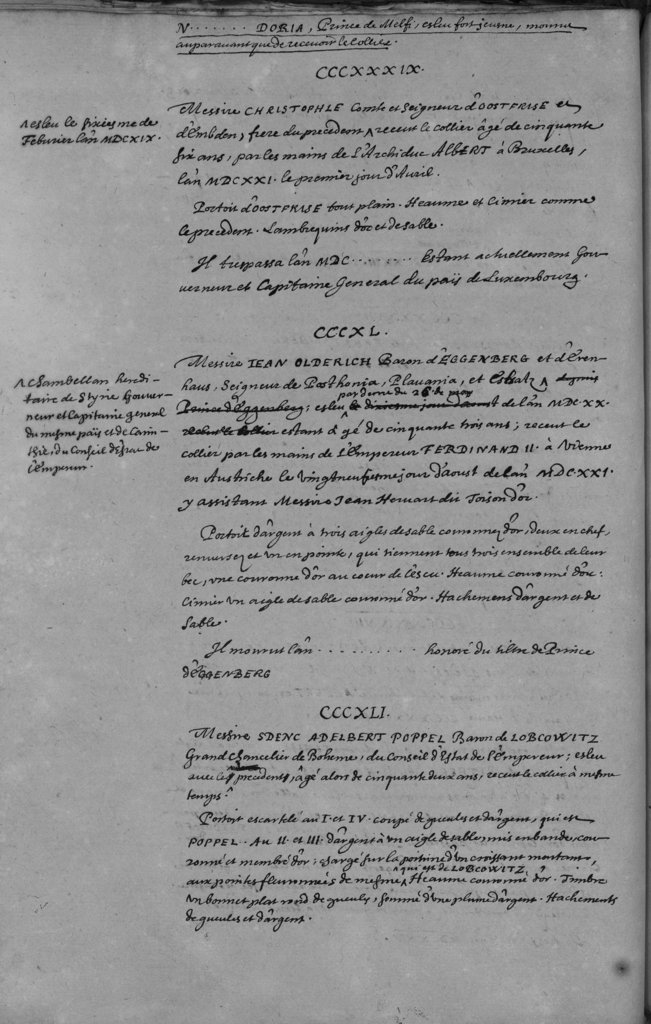 N. . . . . . . . DORIA, Prince de Melfi, esleu fort jeusne, mourut
auparavant que de recevoir le Collier.
CCCXXXIX.
Messire CHRISTOPHLE Comte et Seigneur d'OOSTFRISE et
^ esleu le sixiesme de
Febvrier l'an MDCXIX.
d'Embden, frere du precedent ^ receut le collier âgé de cinquante
six ans, par les mains de L'Archiduc ALBERT à Bruxelles,
l'an MDCXXI. le premier jour d'Avril.
Portoit d'OOSTFRISE tout plain. Heaume et Cimier comme
le precedent. Lambrequins d'or et de sable.
Il trespassa l'an MDC. . . . . . . . Estant actuellement Gou-
verneur et Capitaine General du païs de Luxembourg.
CCCXL.
Messire IEAN OLDERICH Baron d'EGGENBERG et d'Eren-
^ Chambellan heredi-
taire de Styrie Gouver-
neur et Capitaine general
du mesme païs et de Carin-
thie, du Conseil d'Estat de
l'Empereur.
haus, Seigneur de Posthonia, Plavania, et Esbalz ^ depuis
par derme du 26 de may
Prince d'Eggenberg; esleu le dixiesme jour d'aoust de l'an MDCXX.
receut le collier estant âgé de cinquante trois ans; receut le
collier par les mains de L'Empereur FERDINAND II. à Vienne
en Austriche le vingtneufiesme jour d'aoust de l'an MDCXXI.
y assistant Messire Jean Hervart dit Toison d'or.
Portoit d'argent à trois aigles de sable couronnez d'or, deux en chef,
renversez et un en pointe, qui tiennent tous trois ensemble de leur
bec, une couronne d'or au coeur de l'escu. Heaume couronné d'or.
Cimier un aigle de sable couronné d'or. Hachemens d'argent et de
Sable.
Il mourut l'an . . . . . . . . . . honoré du tiltre de Prince
d'EGGENBERG
CCCXLI.
Messire SDENC ADELBERT POPPEL Baron de LOBCOWITZ
Grand Chancelier de Boheme, du Conseil d'Estat de l'Empereur; esleu
avec les precedents, âgé alors de cinquante deux ans, receut le collier à mesme
temps.
Portoit escartelé au I. et IV. coupé de gueules et d'argent, qui est
POPPEL. Au II. et III. d'argent à un aigle de sable, mis en bande, cou-
ronné et membré d'or; chargé sur la poitrine d'un croissant montant,
qui est de LOBCOWITZ.
aux pointes fleuronnées de mesme ^ Heaume couronné d'or. Timbre
un bonnet plat rond de gueules, sommé d'une plume d'argent. Hachements
de gueules et d'argent.